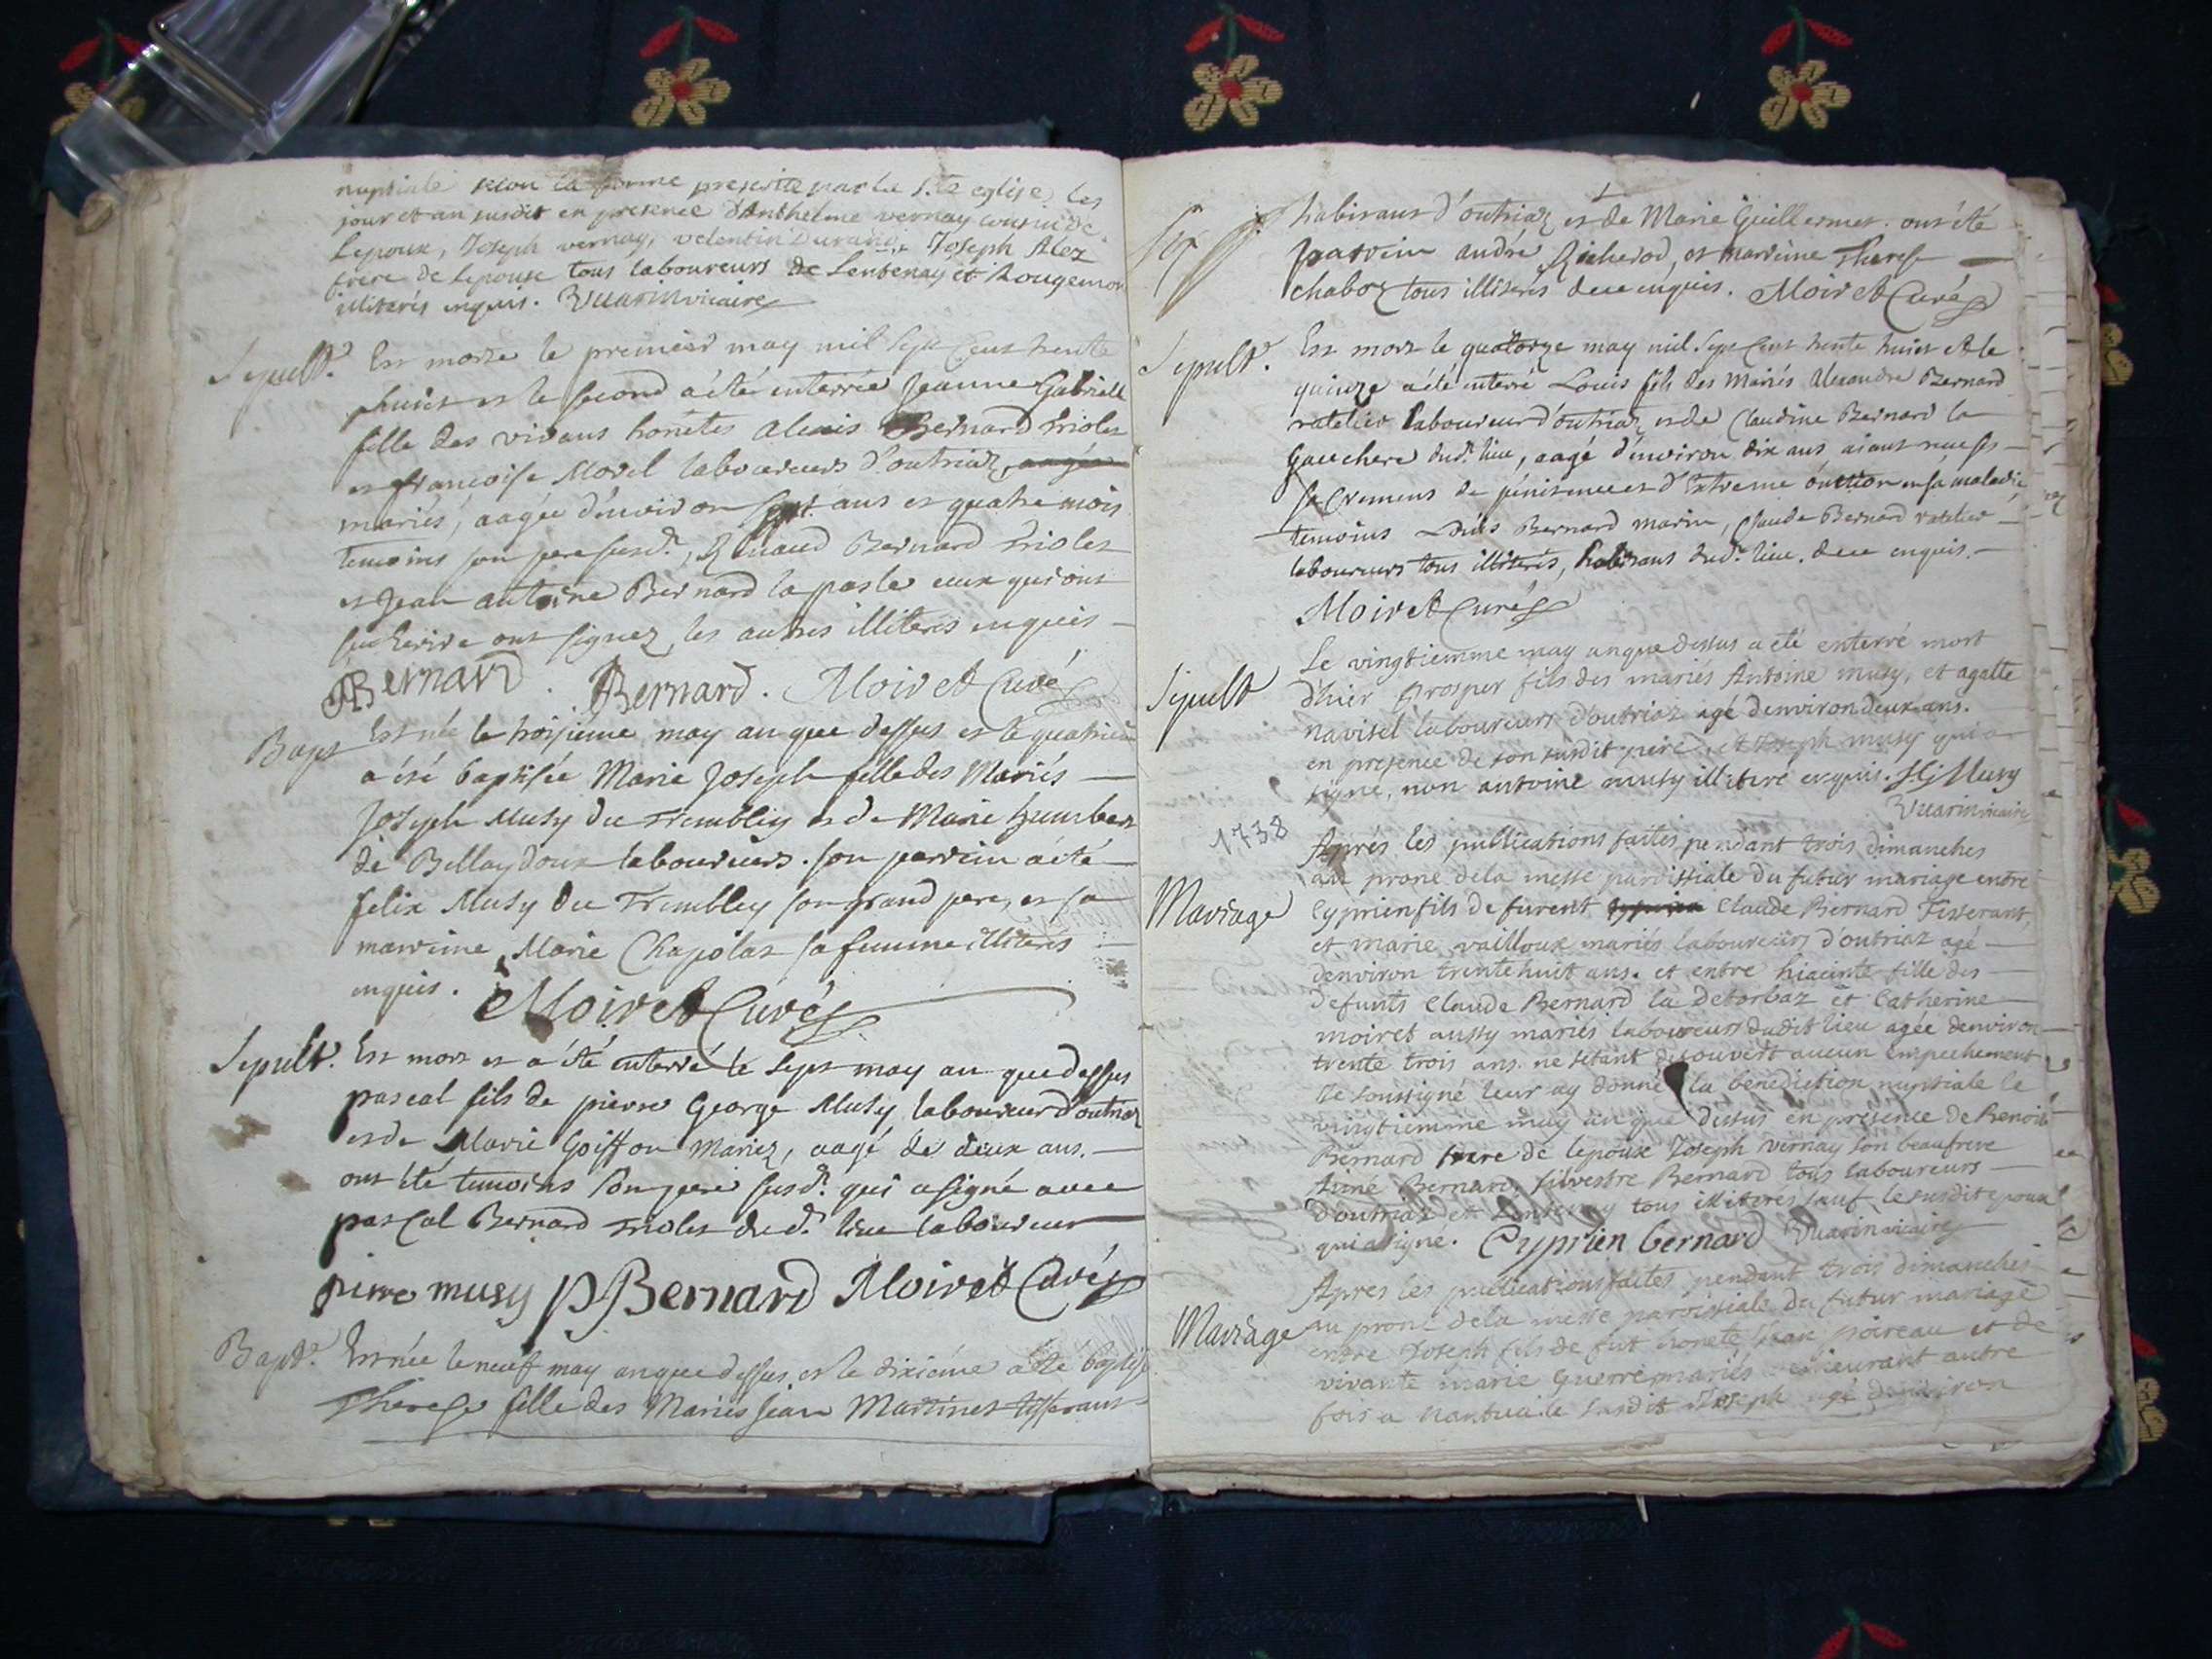 nuptiale selon la forme prescrite par la Ste eglise, les
jour et an susdit en presence d'Anthelme vernay cousin de
Lepoux, Joseph vernay, valentin Durand, Joseph Alez
frere de lepouse tous laboureurs de Lentenay et Rougemon
illiterés enquis. Vuarin vicaire
Sepult.re Est morte le premier may mil sept cent trente
huict et le second a été enterrée Jeanne Gabrielle
fille des vivans honêtes Alexis Bernard triolet
et françoise Morel laboureurs d'outriaz
mariés, aagée d'environ sept ans et quatre mois
temoins son pere susd.t, Renaud Bernard triolet
et Jean antoine Bernard la pasle ceux qui ont
sçu écrire ont signez, les autres illiterés enquis
Bernard. Bernard. Moiret Curé
Bapt Est née le troisieme may an que dessus et le quatrieme
a été baptisée Marie Joseph fille des Mariés
Joseph Musy du Trembley et de Marie humbert
de Bellaydoux laboureurs. son parrein a été
felix Musy du Trembley son grand pere, et sa
marreine Marie Chapolaz sa femme illiterés
enquis. Moiret Curé
Sepult.re Est mort et a été enterré le sept may an que dessus
pascal fils de pierre George Musy laboureur d'outriaz
et de Marie Goiffon Mariez, aagé de deux ans.
ont été temoins Son pere susd.t qui a signé avec
pascal Bernard triolet du d.t lieu laboureur
pierre musy P Bernard Moiret Curé
Bapt.e Est née le neuf may an que dessus, et le dixième a été baptisée
Therese fille des Mariés Jean Martinet tisserant
habitans d'outriaz et de Marie Guillermet. ont été
parrein andré Richerod, et marreine Therese
chaboz tous illiterés de ce enquis. Moiret Curé
Sepult.re Est mort le quatorze may mil Sept Cent trente huict et le
quinze a été enterré Louis fils des Mariés Alexandre Bernard
ratelier laboureur d'outriaz, et de Claudine Bernard la
Gauchere dud.t lieu, aagé d'environ dix ans aiant receu ses
sacremens de pénitence et d'Extreme onction en sa maladie
temoins Louis Bernard marin, Claude Bernard ratelier
laboureurs tous illiterés, habitans dud.t lieu. de ce enquis.
Moiret Curé
Sepult Le vingtiemme may an que dessus a eté enterré mort
d'hier Prosper fils des mariés Antoine musy, et agatte
navisel laboureurs d'outriaz agé denviron deux ans.
en presence de son susdit pere, et Joseph musy qui a
signé, non antoine musy illiteré enquis. Musy
Vuarin vicaire
1738
Mariage Aprés les publications faites pendant trois dimanches
au prone de la messe paroissiale du futur mariage entre
Cyprien fils de furent Claude Bernard Tisserant,
et marie vailloux mariés laboureurs d'outriaz agé
denviron trente huit ans. et entre hiacinte fille des
defunts Claude Bernard la detorbaz et Catherine
moiret aussy mariés laboureurs dudit lieu agée denviron
trente trois ans. ne s'etant decouvert aucun empechement
Je soussigné leur ay donné la benediction nuptiale le
vingtiemme may an que dessus en presence de Benoit
Bernard frere de lepoux Joseph vernay son beaufrere
Aimé Bernard, silvestre Bernard tous laboureurs
d'outriaz et Lentenay tous illiterés sauf le susdit epoux
qui a signé. Cyprien bernard Vuarin vicaire
Mariage Apres les publications faites pendant trois dimanches
au prone de la messe paroissiale du futur mariage
entre Joseph fils de fut honete Jean poireau et de
vivante marie Guerre mariés demeurant autre
fois a Nantua le susdit Joseph agé denviron